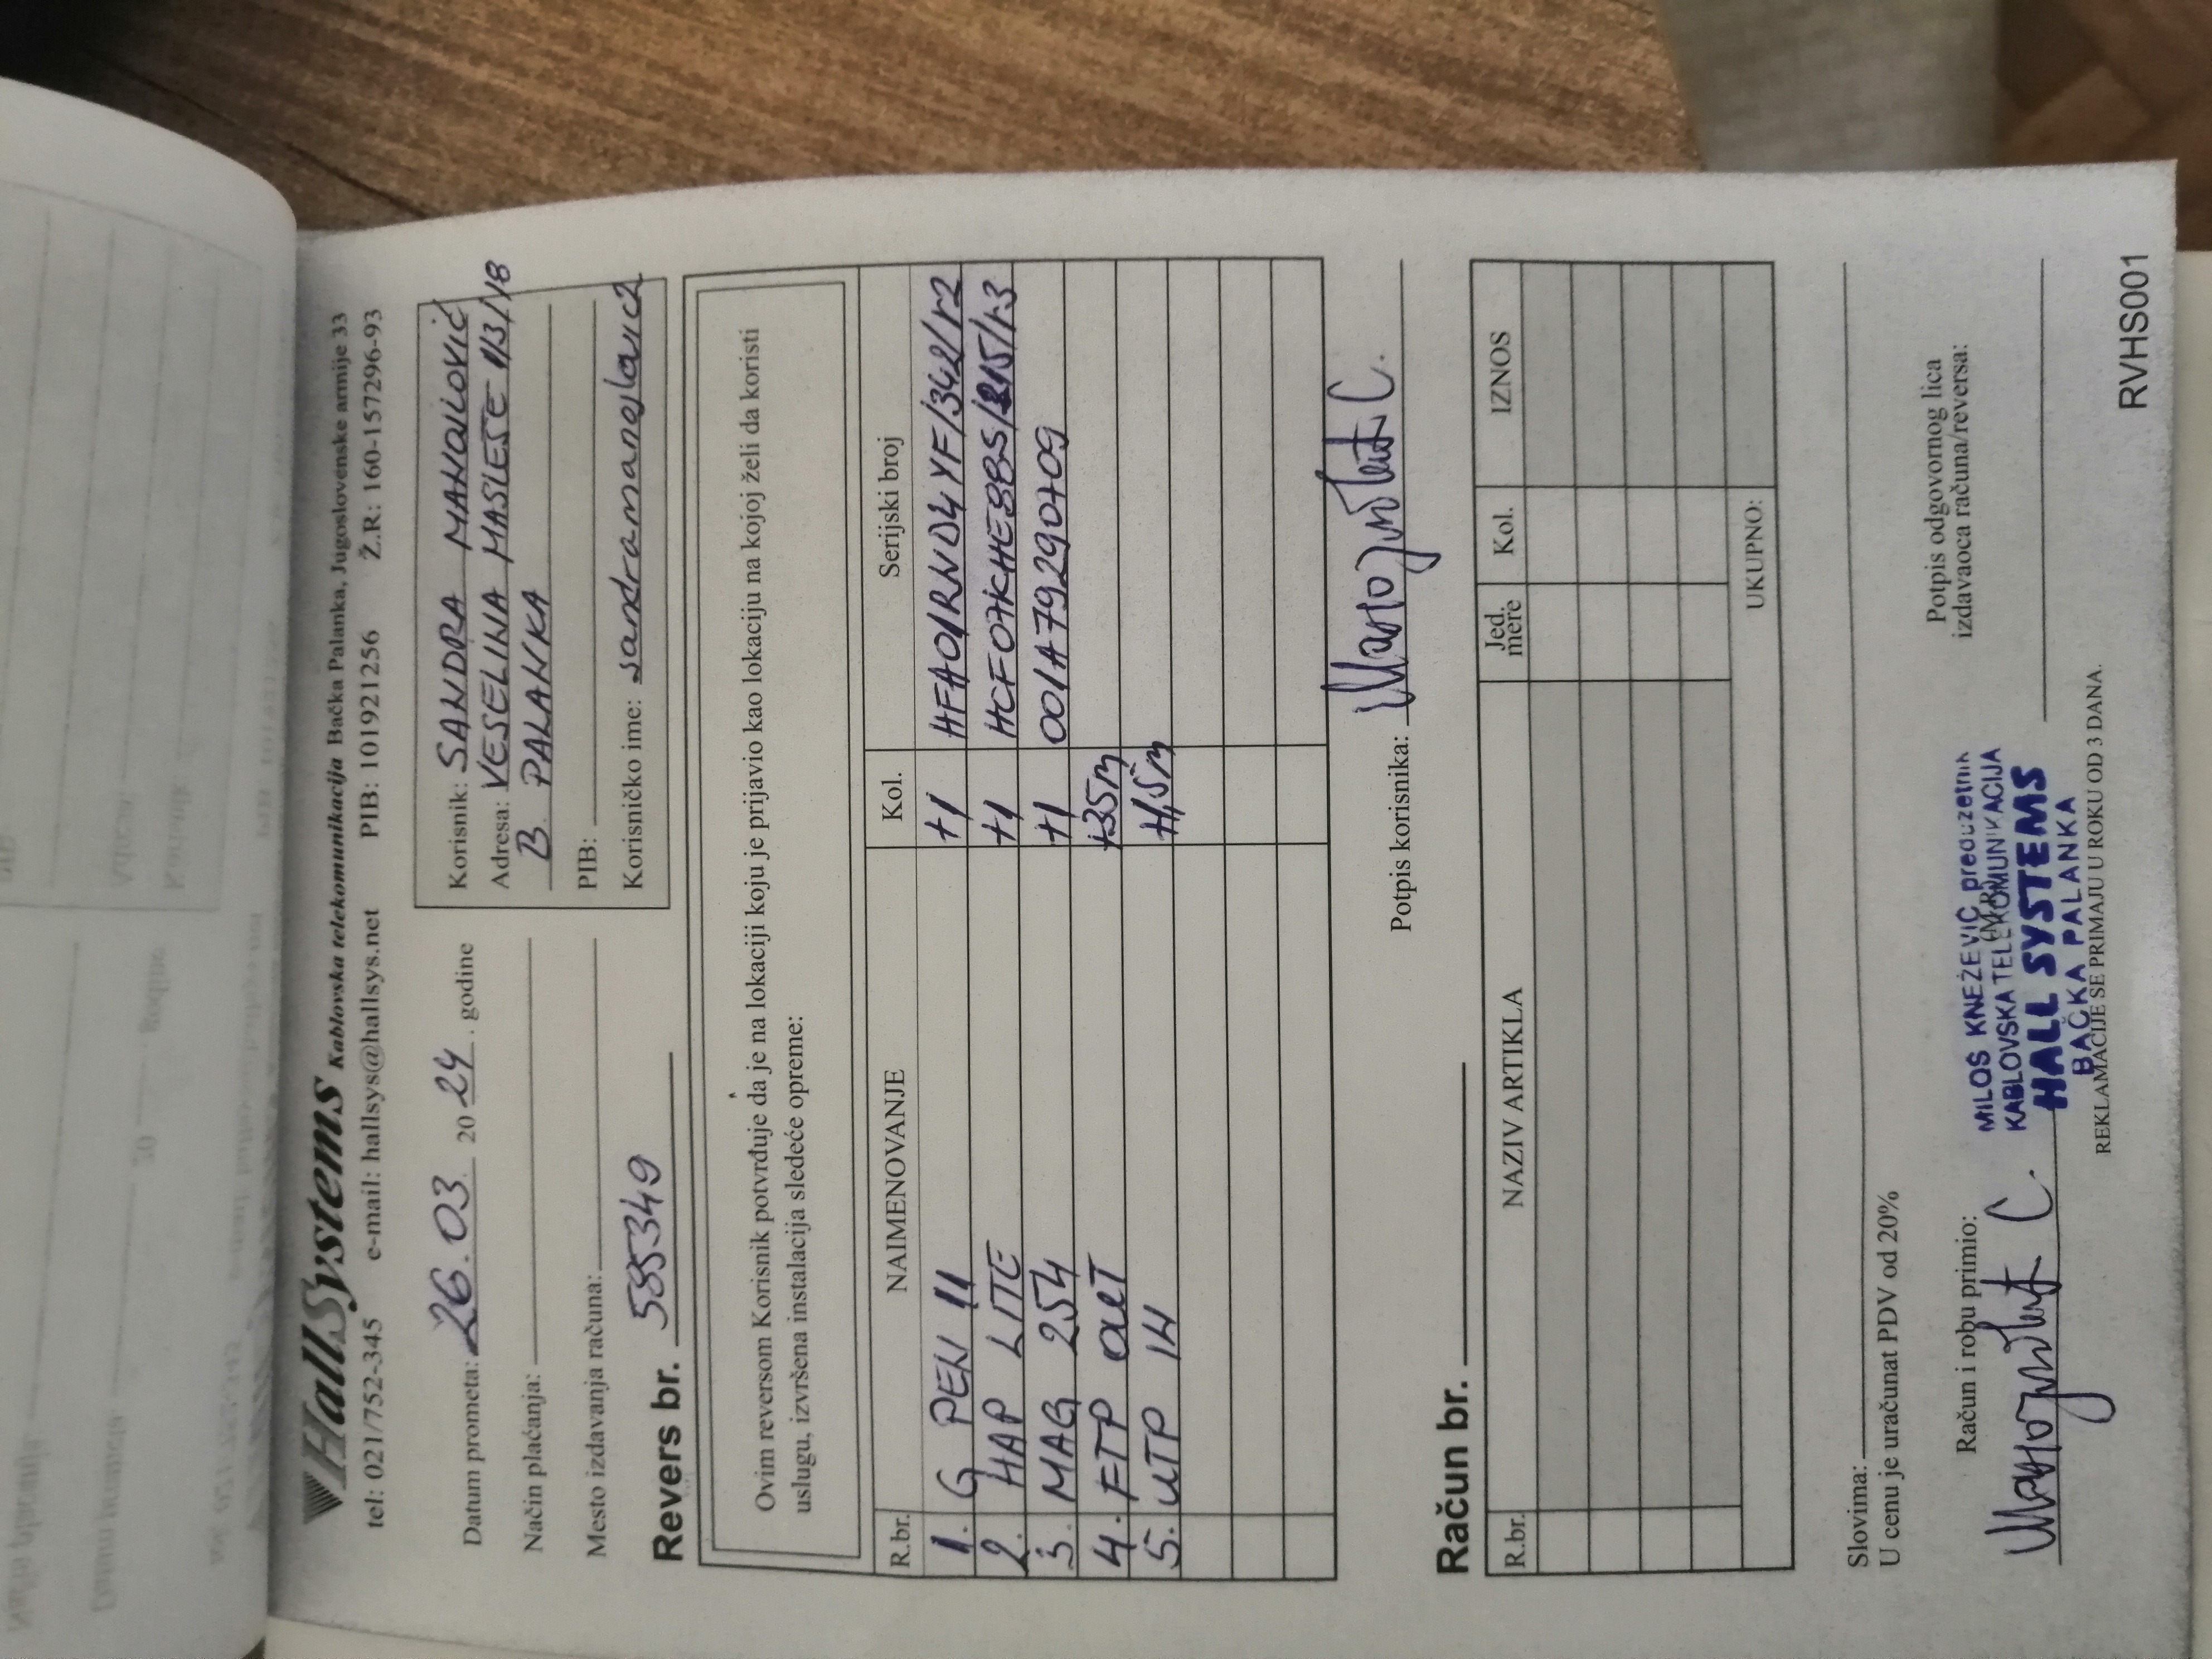 HallSystems Kablovska telekomunikacija Bačka Palanka, Jugoslovenske armije 33
tel: 021/752-345 e-mail: hallsys@hallsys.net PIB: 101921256 Ž.R: 160-157296-93
Datum prometa: 26.03. 2024. godine
Način plaćanja:
Mesto izdavanja računa:
Korisnik: SANDRA MANOJLOVIĆ
Adresa: VESELINA MASLEŠE 1/3/18
B. PALANKA
PIB:
Korisničko ime: sandramanojlovic2
Revers br. 585349
Ovim reversom Korisnik potvrđuje da je na lokaciji koju je prijavio kao lokaciju na kojoj želi da koristi
uslugu, izvršena instalacija sledeće opreme:
R.br. NAIMENOVANJE Kol. Serijski broj
1. G PEN 11 +1 HFA01RND4YF/342/r2
2. HAP LITE +1 HCF07KHE8BS/215/r3
3. MAG 254 +1 001A79290709
4. FTP OUT +35m
5. UTP IH +1,5m
Potpis korisnika:
Račun br.
R.br. NAZIV ARTIKLA Jed. mere Kol. IZNOS
UKUPNO:
Slovima:
U cenu je uračunat PDV od 20%
Račun i robu primio:
(M.P.)
Potpis odgovornog lica
izdavaoca računa/reversa:
MILOŠ KNEŽEVIĆ preduzetnik
KABLOVSKA TELEKOMUNIKACIJA
HALL SYSTEMS
BAČKA PALANKA
REKLAMACIJE SE PRIMAJU U ROKU OD 3 DANA.
RVHS001